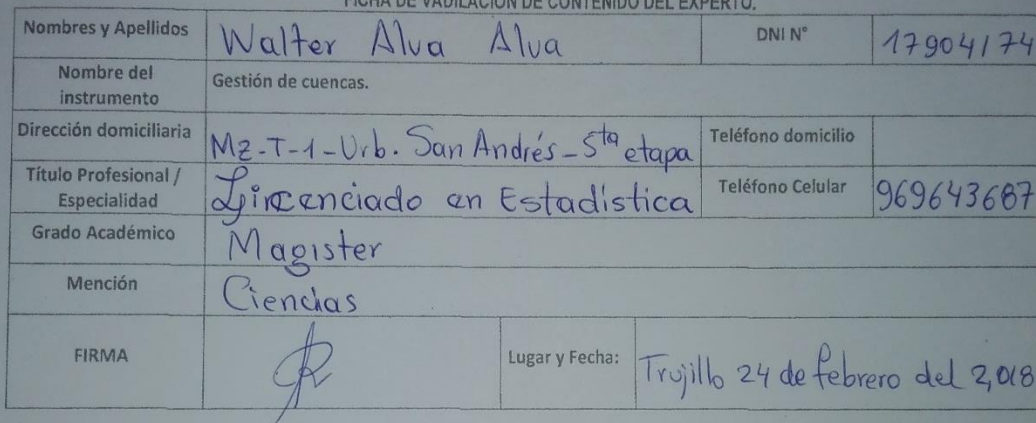 FICHA DE VADILACIÓN DE CONTENIDO DEL EXPERTO.
Nombres y Apellidos Walter Alva Alva DNI N° 17904174
Nombre del instrumento Gestión de cuencas.
Dirección domiciliaria Mz-T-1-Urb. San Andrés-5ta etapa Teléfono domicilio
Título Profesional / Especialidad Lircenciado en Estadística Teléfono Celular 969643687
Grado Académico Magister
Mención Ciencias
FIRMA Lugar y Fecha: Trujillo 24 de febrero del 2,018